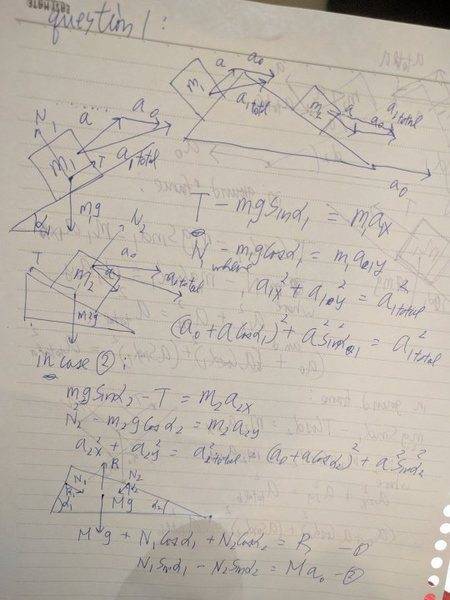 question 1:
a a₀
m₁
a₁total
m₂ a a₀ a₁total
a₀
N₁ a a₀
m₁ T a₁total
α₁
mg
T - mg sinα₁ = m₁a₁x
N₁ - m₁g cosα₁ = m₁a₁y
where
a₁x² + a₁y² = a₁total²
(a₀ + a cosα₁)² + a² sin²α₁ = a₁total²
N₂
T a₀
m₂ a₁total
m₂g
in case ②:
mg sinα₂ - T = m₂a₂x
N₂ - m₂g cosα₂ = m₂a₂y
a₂x² + a₂y² = a₂total² = (a₀ + a cosα₂)² + a² sin²α₂
R
N₁ N₂
α₁ α₂ Mg α₂
Mg + N₁cosα₁ + N₂cosα₂ = R —①
N₁ sinα₁ - N₂ sinα₂ = Ma₀ —②